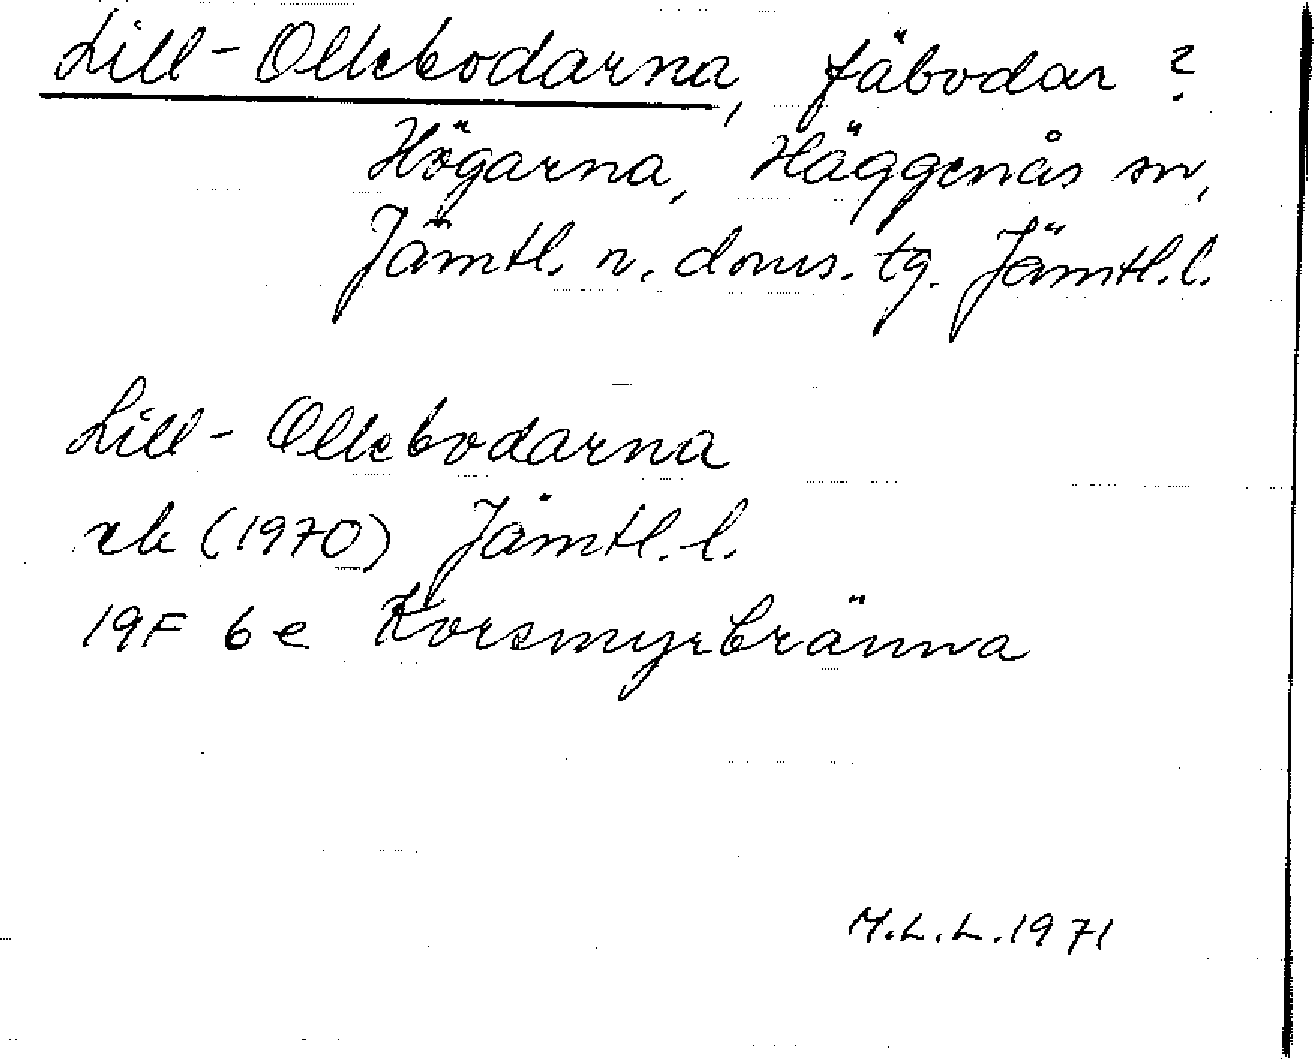 Lill-Ollebodarna, fäbodar ?
Högarna, Häggenås sn,
Jämtl. n. doms. tg. Jämtl.l.
Lill-Ollebodarna
rek (1970) Jämtl.l.
19F 6e Korsmyrbränna
M.L.L.1971